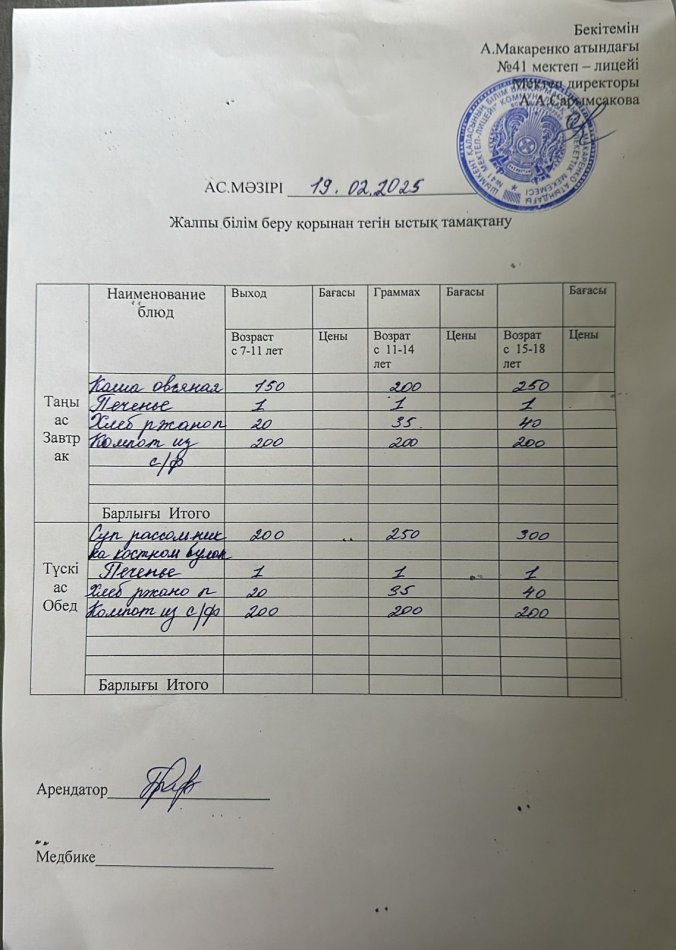 Бекітемін
А.Макаренко атындағы
№41 мектеп – лицейі
Мектеп директоры
А.А.Сарымсакова
АС.МӘЗІРІ 19.02.2025
Жалпы білім беру қорынан тегін ыстық тамақтану
Наименование блюд Выход Бағасы Граммах Бағасы Бағасы
Возраст с 7-11 лет Цены Возрат с 11-14 лет Цены Возрат с 15-18 лет Цены
Таңы ас Завтрак
Каша овсяная 150 200 250
Печенье 1 1 1
Хлеб ржаноп 20 35 40
Компот из 200 200 200
с/ф
Барлығы Итого
Түскі ас Обед
Суп рассолник 200 250 300
на костном
Печенье 1 1 1
Хлеб ржано п 20 35 40
Компот из с/ф 200 200 200
Барлығы Итого
Арендатор
Медбике